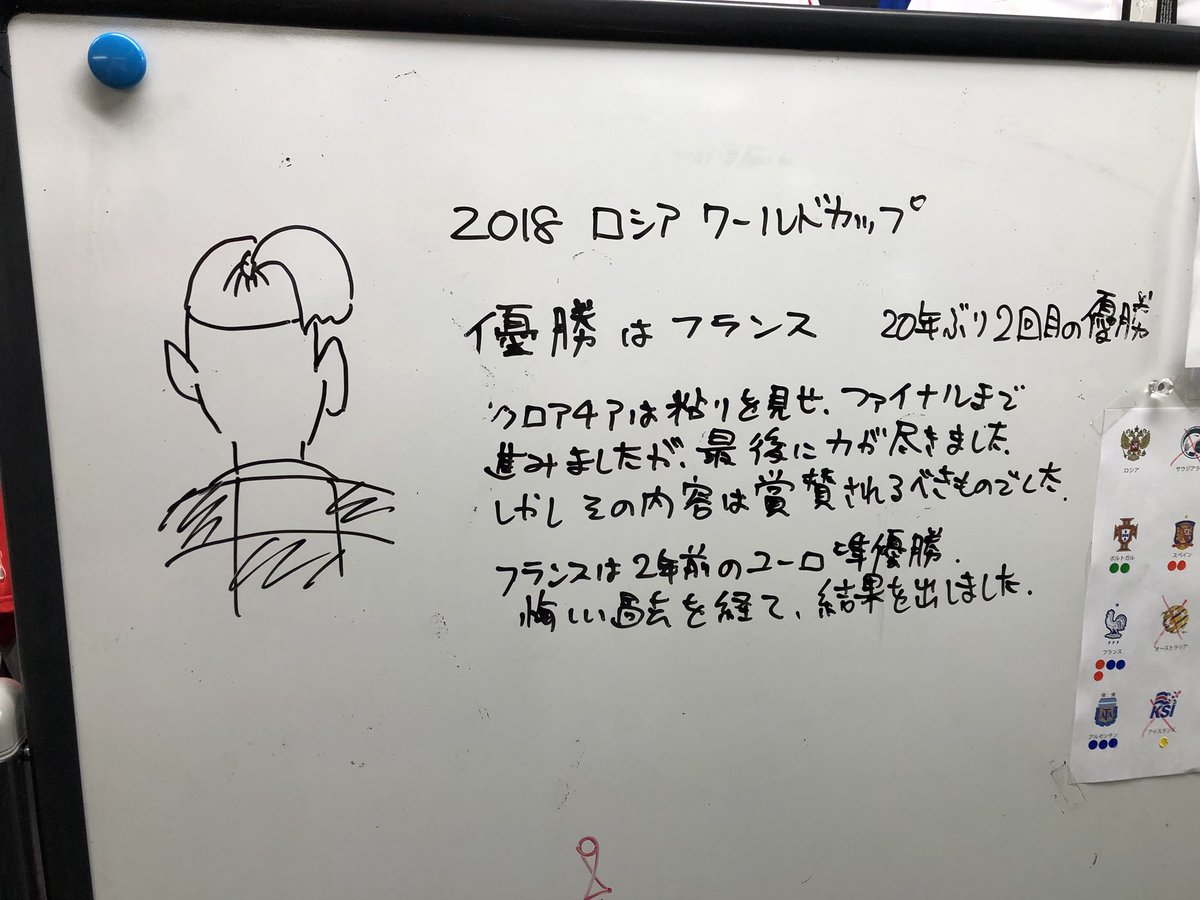 2018 ロシア ワールドカップ
優勝はフランス 20年ぶり2回目の優勝
クロアチアは粘りを見せ、ファイナルまで
進みましたが、最後に力が尽きました.
しかし その内容は賞賛されるべきものでした.
フランスは2年前のユーロ準優勝.
悔しい過去を経て、結果を出しました.
ロシア サウジアラ
ポルトガル スペイン
フランス オーストラリア
KSI
アルゼンチン アイスランド